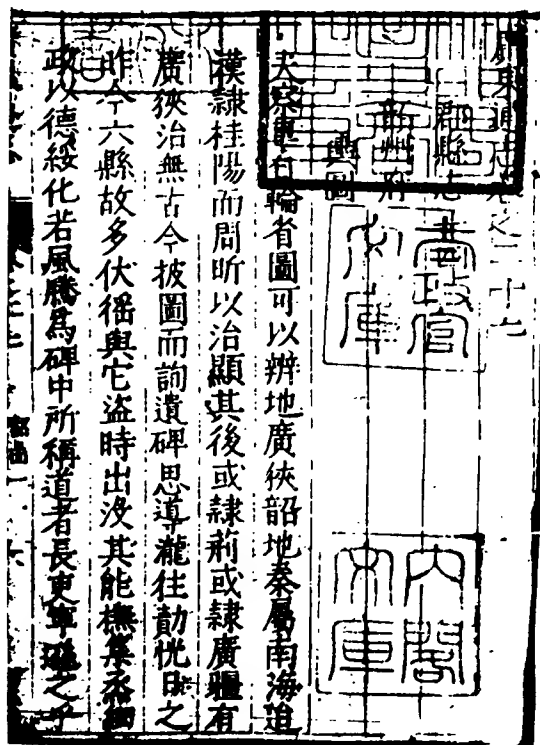 廣東通志卷之二十七
郡縣志
韶州府
輿圖
夫察輿□輪省圖可以辨地廣狹韶地秦屬南海迨
漢隸桂陽而問昕以治顯其後或隸荊或隸廣疆有
廣狹治無古今披圖而詢遺碑思導瀧往勣恍日之
昨今六縣故多伏徭與它盜時出沒其能撫集
政以德綏化若風騰為碑中所稱道者長吏寧遜之乎
書政官
文庫
內閣
文庫